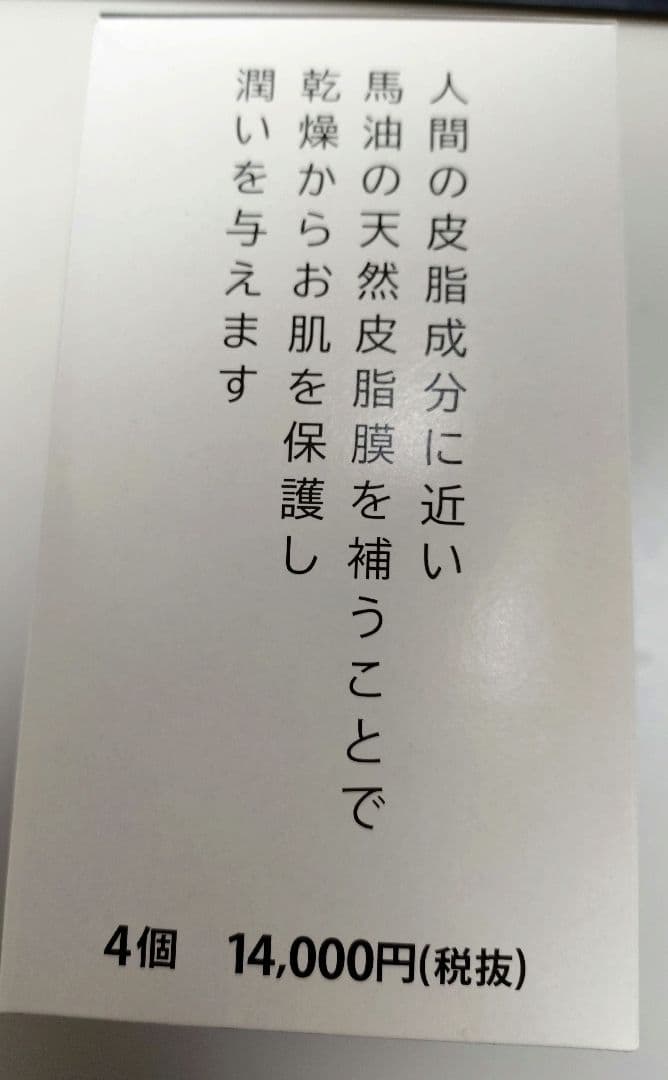 人間の皮脂成分に近い
馬油の天然皮脂膜を補うことで
乾燥からお肌を保護し
潤いを与えます
4個　14,000円(税抜)